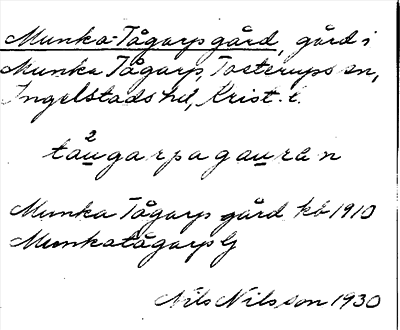 Munka-Tågarps gård, gård i
Munka Tågarp, Tosterups sn,
Ingelstads hd, Krist. l.
2
tau̲garpagau̲rən
Munka Tågarps gård kb 1910
Munkatågarp G
Nils Nilsson 1930